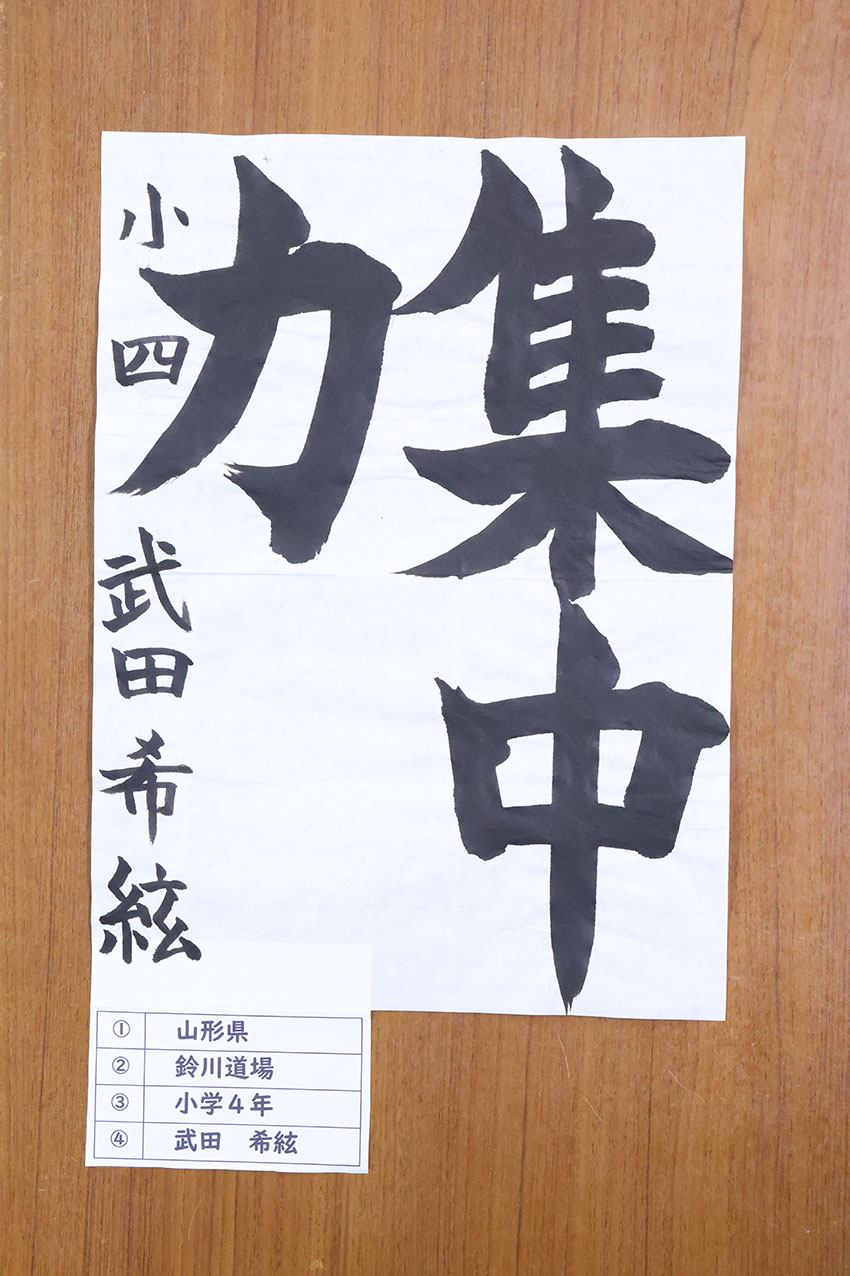 集中
力
小四 武田希絃
① 山形県
② 鈴川道場
③ 小学4年
④ 武田 希絃